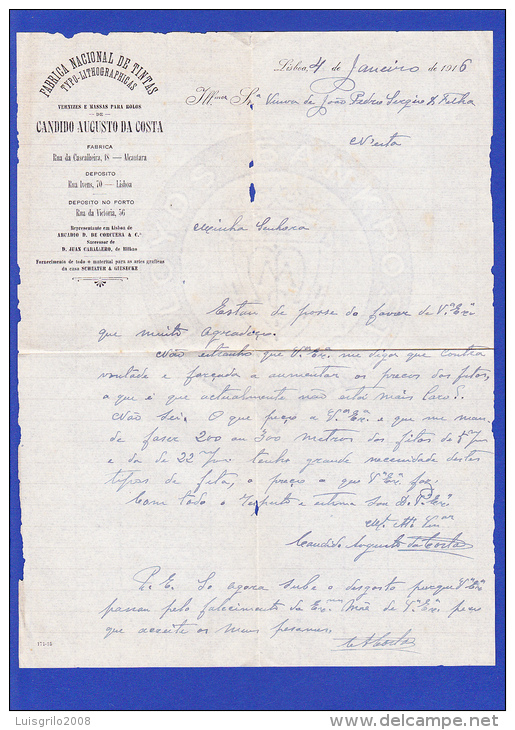 FABRICA NACIONAL DE TINTAS
TYPO-LITHOGRAPHICAS
VERNIZES E MASSAS PARA ROLOS
DE
CANDIDO AUGUSTO DA COSTA
FABRICA
Rua da Cascalheira, 18 — Alcantara
DEPOSITO
Rua Ivens, 70 — Lisboa
DEPOSITO NO PORTO
Rua da Victoria, 56
Representante em Lisboa de
ARCADIO R. DE CORCUERA & C.ª
Successor de
D. JUAN CABALLERO, de Bilbao
Fornecimento de todo o material para as artes graficas
da casa SCHELTER & GIESECKE
Lisboa, 4 de Janeiro de 1916
Ill.mas Sr.ª Viuva de João Pedro Sergio & Filha
Minha Senhora
Estou de posse do favor de V.ª Ex.ª
que muito agradeço.
Não extranho que V.ª Ex.ª me diga que contra
vontade é forçada a aumentar os preços das fitas,
a que é que actualmente não está mais caro?.
Não sei. O que peço a V.ª Ex.ª é que me man-
de fazer 200 ou 300 metros das fitas de
e da de 22 tenho grande necessidade destes
typos de fita, o preço a que V.ª Ex.ª
Com todo o respeito e estima sou D. V.ª Ex.ª
Candido Augusto da Costa
P. E. Só agora sube o desgosto porque V.ª Ex.ª
passou pelo falecimento da Ex.ma Mãe de V.ª Ex.ª peço
que aceite os meus pesames.
ACosta
171-16
Luisgrilo2008
www.delcampe.net